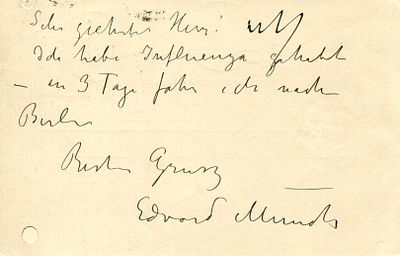 Sehr geehrter Herr!
Ich habe Influenza gehabt
– in 3 Tage fahre ich nach
Berlin
Besten Gruss
Edvard Munch